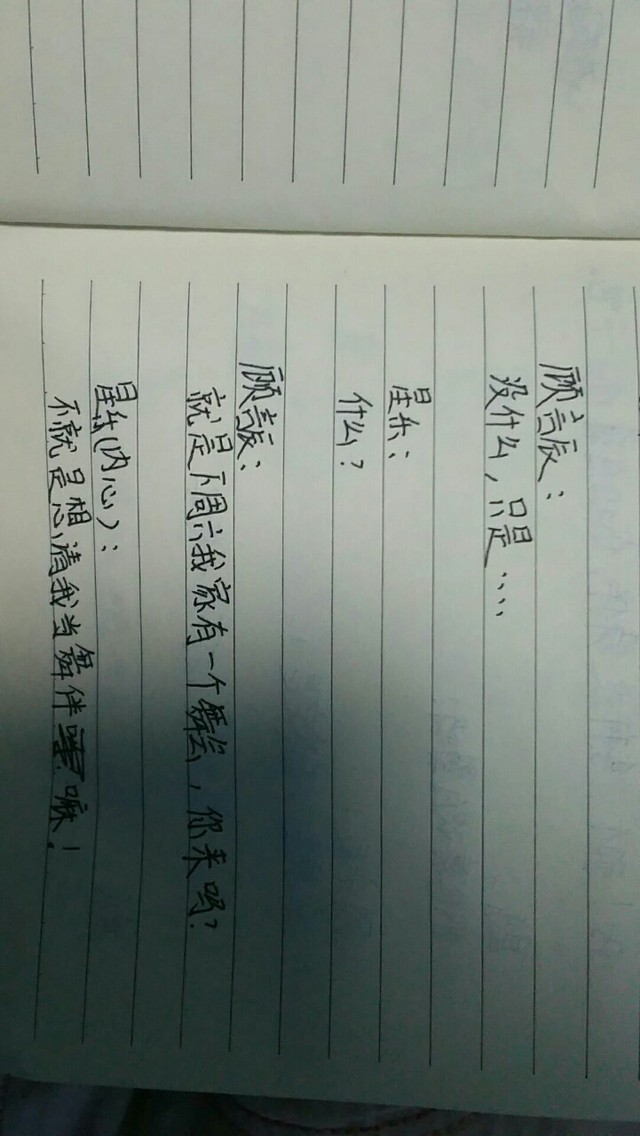 顾言辰：
没什么，只是……
星乐：
什么？
顾言辰：
就是下周六我家有一个舞会，你来吗？
星乐(内心)：
不就是想请我当舞伴嘛！